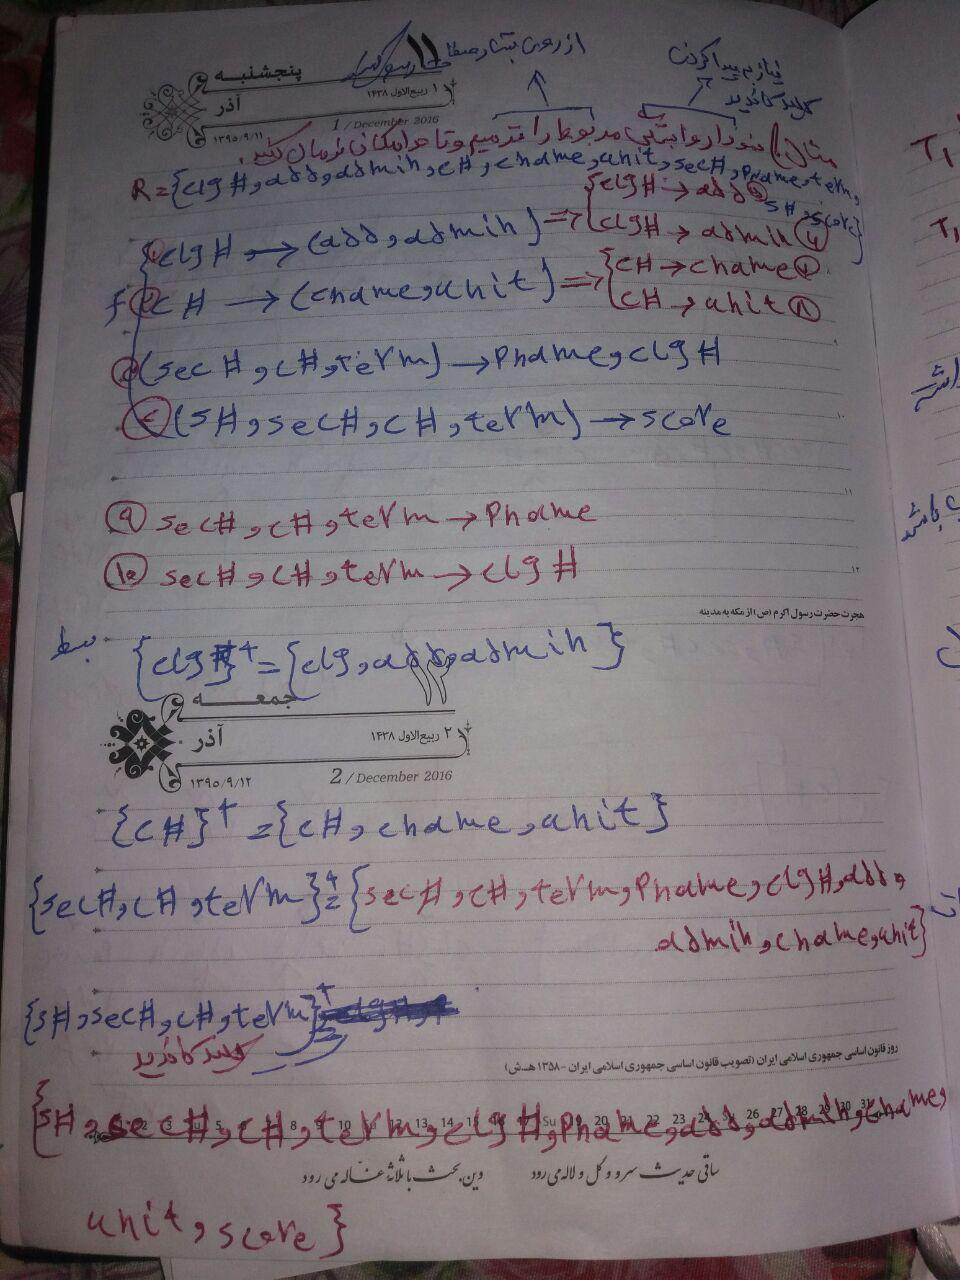 از روی بستار صفات
نیاز به پیدا کردن
کلید کاندید
۱۱
پنجشنبه
آذر
۱ ربیع‌الاول ۱۴۳۸
۱۳۹۵/۹/۱۱
1 / December 2016
مثال) نمودار وابستگی مربوط را ترسیم و تا حد امکان نرمال کنید.
R = {clg#, add, admin, c#, cname, unit, sec#, Pname, term,
s#, score}
① clg# → (add, admin) ⇒ { clg# → add
clg# → admin
f ② c# → (cname, unit) ⇒ { c# → cname
c# → unit ⑧
(sec#, c#, term) → Pname, clg#
④ (s#, sec#, c#, term) → score
⑨ sec#, c#, term → Pname
⑩ sec#, c#, term → clg#
هجرت حضرت رسول اکرم (ص) از مکه به مدینه
{clg#}+ = {clg, add, admin}
۱۲
جمعه
آذر
۲ ربیع‌الاول ۱۴۳۸
۱۳۹۵/۹/۱۲
2 / December 2016
{c#}+ = {c#, cname, unit}
{sec#, c#, term}+ = {sec#, c#, term, Pname, clg#, add,
admin, cname, unit}
{s#, sec#, c#, term}+ =
کلید کاندید
روز قانون اساسی جمهوری اسلامی ایران (تصویب قانون اساسی جمهوری اسلامی ایران - ۱۳۵۸ هـ.ش)
{s#, sec#, c#, term, clg#, Pname, add, admin, cname,
ساقی حدیث سرو و گل و لاله می رود وین بحث با ثلاثهٔ غساله می رود
unit, score}